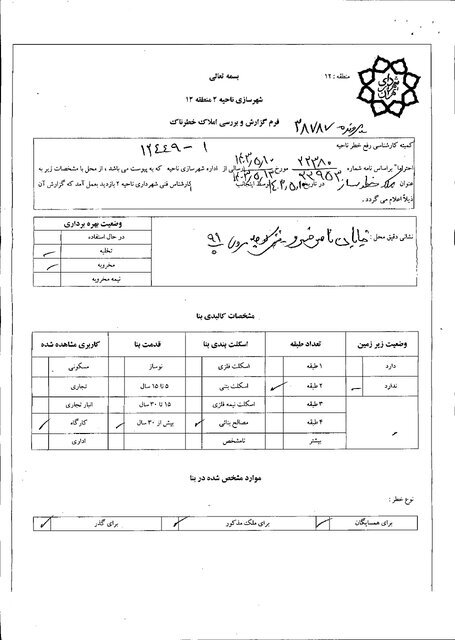 بسمه تعالی
منطقه : ۱۲
شهرسازی ناحیه ۲ منطقه ۱۲
فرم گزارش و بررسی املاک خطرناک
پرونده ۳۸۷۸۷
کمیته کارشناسی رفع خطر ناحیه
۱۲۴۴۹-۱
احتراماً" براساس نامه شماره ۲۲۳۸۰ مورخ ارسالی از اداره شهرسازی ناحیه که به پیوست می باشد ، از محل با مشخصات زیر به
عنوان ملک خطرساز در تاریخ توسط اینجانب کارشناس فنی شهرداری ناحیه ۲ بازدید بعمل آمد که گزارش آن
ذیلاً اعلام می گردد .
نشانی دقیق محل : خیابان ناصر خسرو کوچه ۹۱
وضعیت بهره برداری
در حال استفاده
تخلیه
مخروبه
نیمه مخروبه
مشخصات کالبدی بنا
وضعیت زیر زمین تعداد طبقه اسکلت بندی بنا قدمت بنا کاربری مشاهده شده
دارد ۱ طبقه اسکلت فلزی نوساز مسکونی
ندارد ۲ طبقه اسکلت بتنی ۵ تا ۱۵ سال تجاری
۳ طبقه اسکلت نیمه فلزی ۱۵ تا ۳۰ سال انبار تجاری
۴ طبقه مصالح بنائی بیش از ۳۰ سال کارگاه
بیشتر نامشخص اداری
موارد مشخص شده در بنا
نوع خطر :
برای همسایگان برای ملک مذکور برای گذر